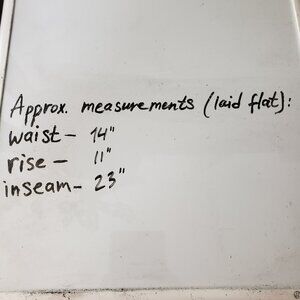 Approx. measurements (laid flat):
waist- 14"
rise - 11"
inseam- 23"